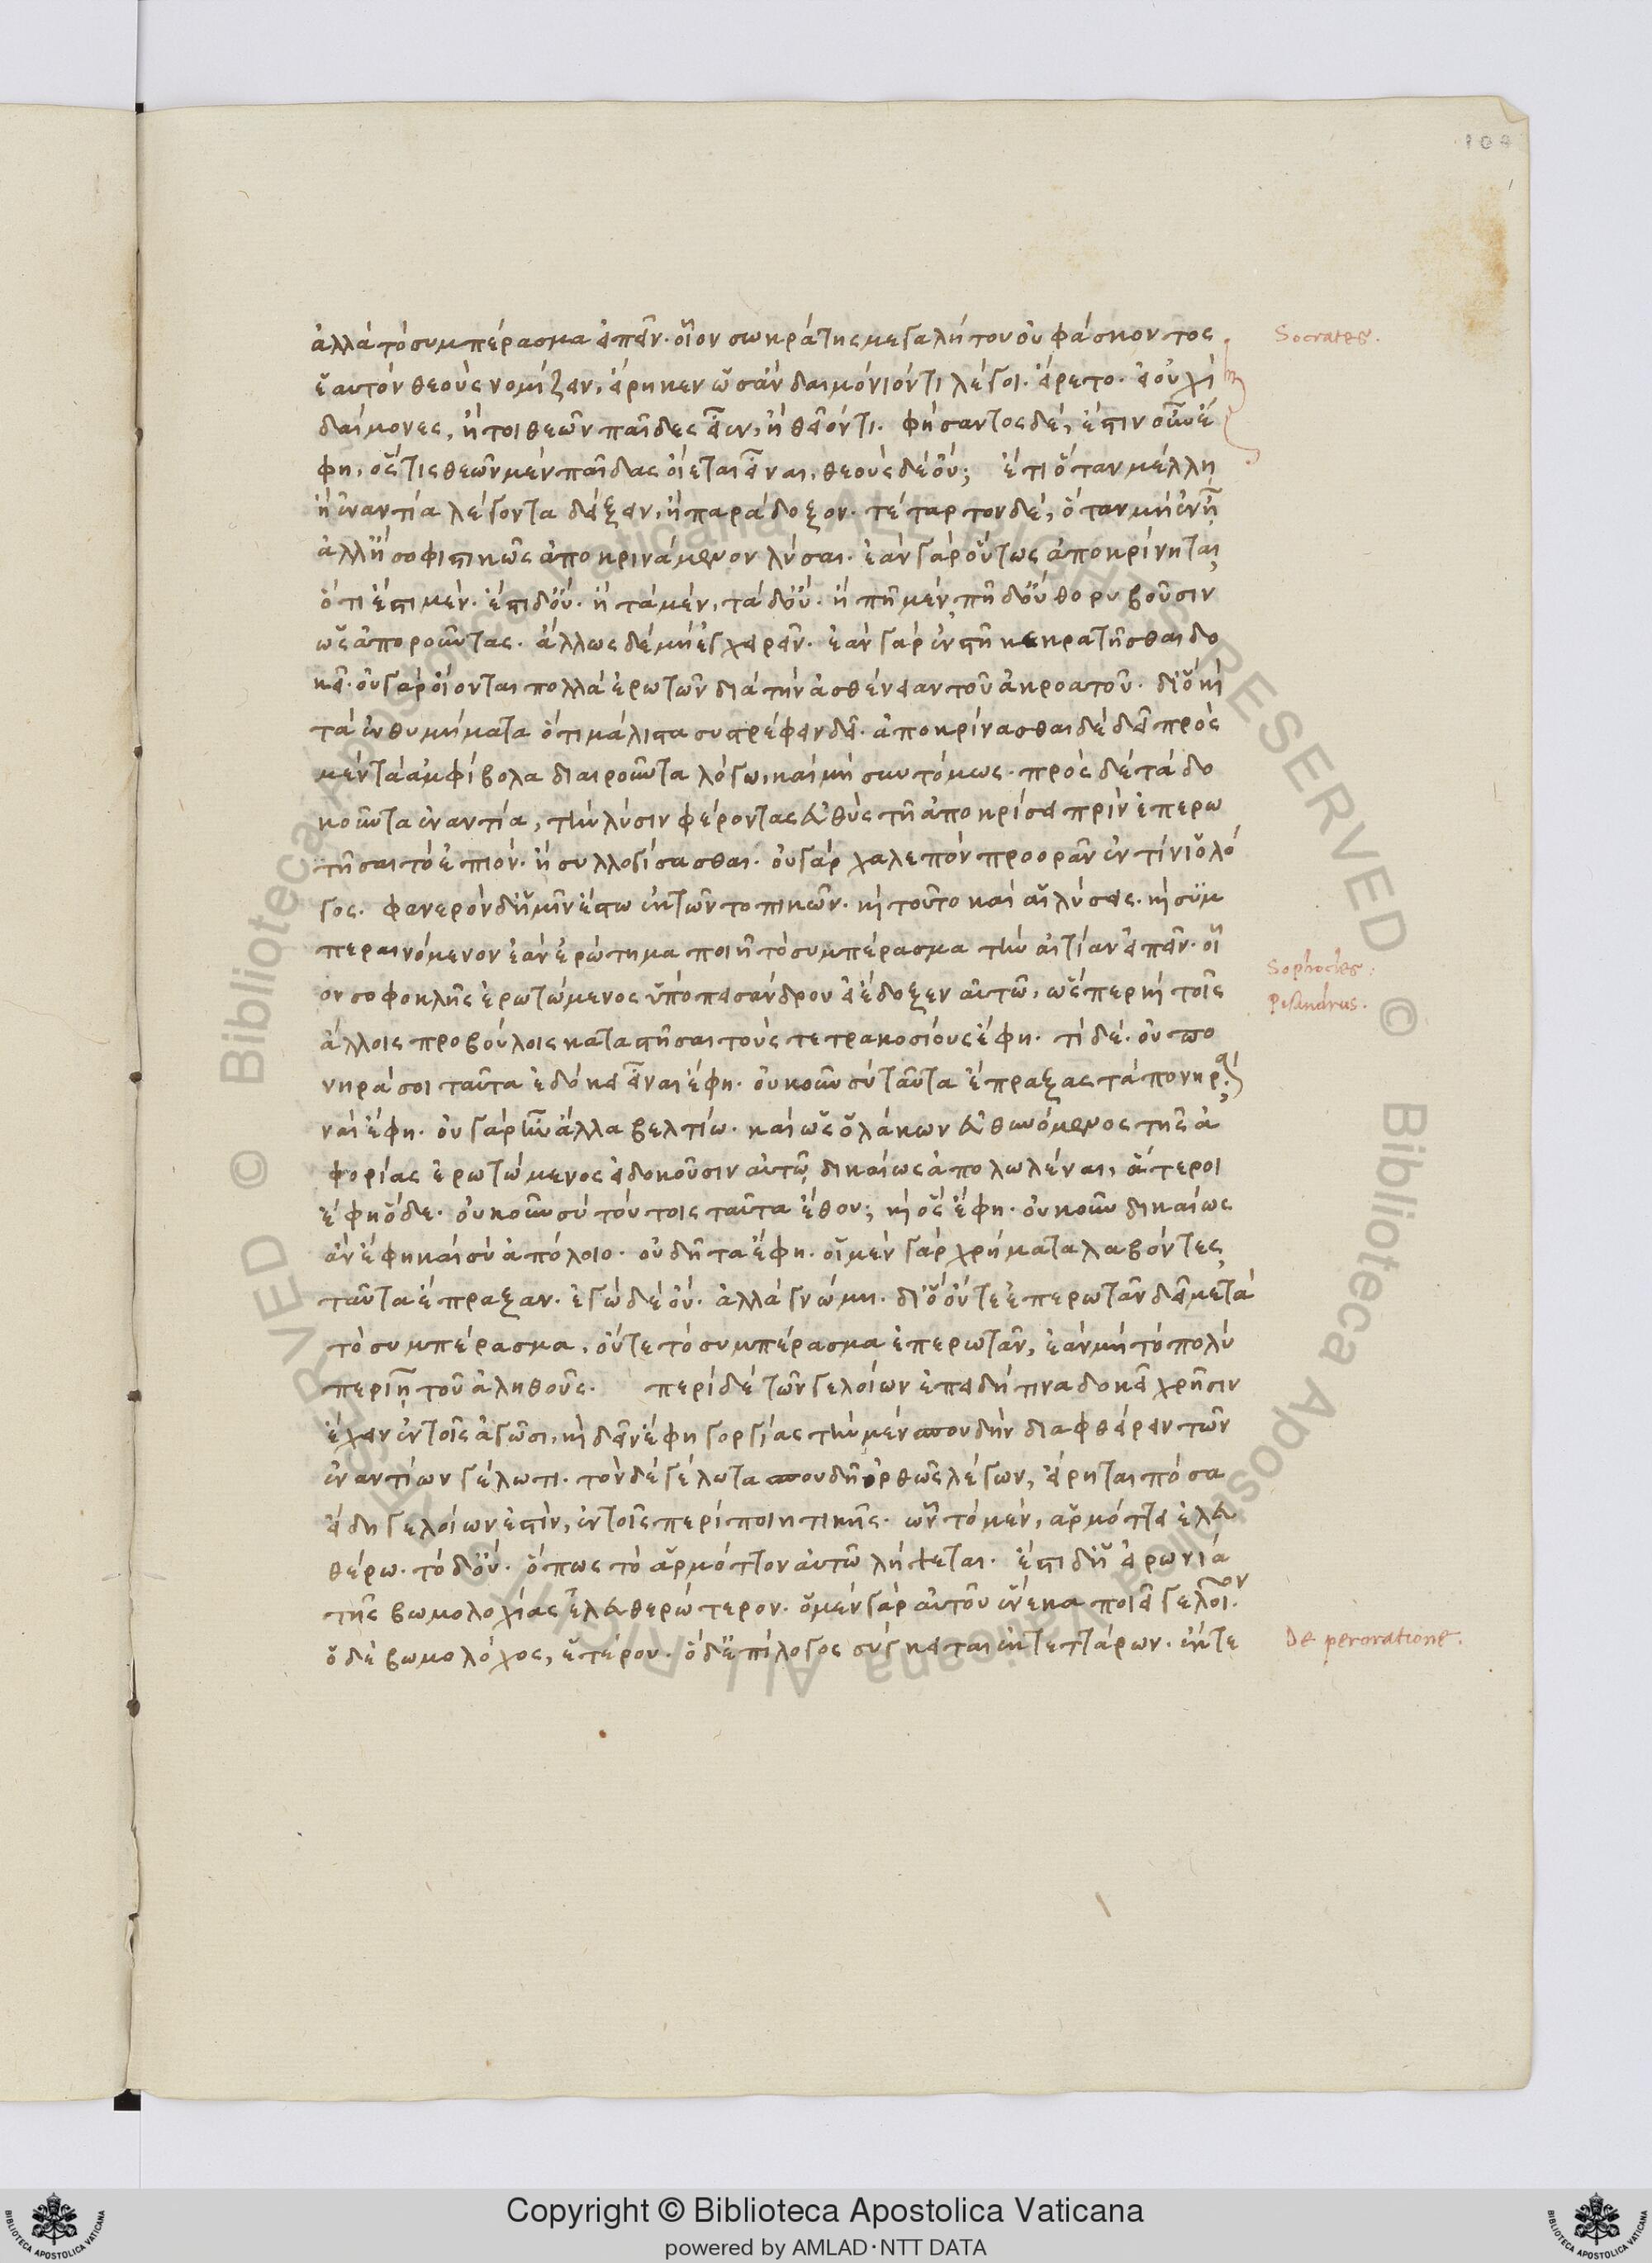 109
ἀλλὰ τὸ συμπέρασμα εἰπεῖν· οἷον σωκράτης μεγαλήτου οὐ φάσκοντος
Socrates.
ἑαυτὸν θεοὺς νομίζειν, εἴρηκεν ὡς ἂν δαιμόνιόν τι λέγοι. εἴρετο· εἰ οὐχὶ
δαίμονες, ἤτοι θεῶν παῖδες εἶεν, ἢ θεῖόν τι. φήσαντος δέ, ἔστιν οὖν ἔ
φη, ὅστις θεῶν μὲν παῖδας οἴεται εἶναι, θεοὺς δὲ οὔ; ἔτι ὅταν μέλλῃ
ἢ ἐναντία λέγοντα δείξειν, ἢ παράδοξον. τέταρτον δέ, ὅταν μὴ ἐνῇ
ἀλλ' ἢ σοφιστικῶς ἀποκρινάμενον λῦσαι. ἐὰν γὰρ οὕτως ἀποκρίνηται
ὅτι ἔστι μέν· ἔστι δ' οὔ· ἢ τὰ μέν, τὰ δ' οὔ· ἢ πῇ μέν, πῇ δ' οὔ θορυβοῦσιν
ὡς ἀποροῦντας. ἄλλως δὲ μὴ ἐγχειρεῖν. ἐὰν γὰρ ἐνστῇ κεκρατῆσθαι δο
κεῖ· οὐ γὰρ οἴονται πολλὰ ἐρωτᾶν διὰ τὴν ἀσθένειαν τοῦ ἀκροατοῦ. διὸ κὶ
τὰ ἐνθυμήματα ὅτι μάλιστα συστρέφειν δεῖ. ἀποκρίνασθαι δὲ δεῖ πρὸς
μὲν τὰ ἀμφίβολα διαιροῦντα λόγω, καὶ μὴ συντόμως. πρὸς δὲ τὰ δο
κοῦντα ἐναντία, τὴν λύσιν φέροντας εὐθὺς τῇ ἀποκρίσει πρὶν ἐπερω
τῆσαι τὸ ἐπιόν· ἢ συλλογίσασθαι. οὐ γὰρ χαλεπὸν προορᾶν ἐν τίνι ὁ λό
γος. φανερὸν δ' ἡμῖν ἔστω ἐκ τῶν τοπικῶν. κὶ τοῦτο καὶ αἱ λύσεις. κὶ συμ
περαινόμενον ἐὰν ἐρώτημα ποιῇ τὸ συμπέρασμα τὴν αἰτίαν εἰπεῖν. οἷ
Sophocles:
ον σοφοκλῆς ἐρωτώμενος ὑπὸ πεισάνδρου εἰ ἔδοξεν αὐτῶ, ὥσπερ κὶ τοῖς
Pisandrus.
ἄλλοις προβούλοις καταστῆσαι τοὺς τετρακοσίους ἔφη. τί δέ. οὐ πο
νηρά σοι ταῦτα ἐδόκει εἶναι ἔφη. οὐκοῦν σὺ ταῦτα ἔπραξας τὰ πονηρά;
ναὶ ἔφη. οὐ γὰρ ἦν ἄλλα βελτίω. καὶ ὡς ὁ λάκων εὐθυνόμενος τῆς ἀ
φορίας ἐρωτώμενος εἰ δοκοῦσιν αὐτῷ δικαίως ἀπολωλέναι, ἅτεροι
ἔφη ὅδε. οὐκοῦν σὺ τούτοις ταῦτα ἔθου; κὶ ὃς ἔφη. οὐκοῦν δικαίως
ἂν ἔφη καὶ σὺ ἀπόλοιο. οὐ δῆτα ἔφη. οἱ μὲν γὰρ χρήματα λαβόντες
ταῦτα ἔπραξαν. ἐγὼ δὲ οὔ. ἀλλὰ γνώμη. διὸ οὔτε ἐπερωτᾶν δεῖ μετὰ
τὸ συμπέρασμα, οὔτε τὸ συμπέρασμα ἐπερωτᾶν, ἐὰν μὴ τὸ πολὺ
περιῇ τοῦ ἀληθοῦς. περὶ δὲ τῶν γελοίων ἐπειδή τινα δοκεῖ χρῆσιν
ἔχειν ἐν τοῖς ἀγῶσι, κὶ δεῖν ἔφη γοργίας τὴν μὲν σπουδὴν διαφθείρειν τῶν
ἐναντίων γέλωτι. τὸν δὲ γέλωτα σπουδῇ ὀρθῶς λέγων, εἴρηται πόσα
εἴδη γελοίων ἐστίν, ἐν τοῖς περὶ ποιητικῆς. ὧν τὸ μέν, ἁρμόττει ἐλευ
θέρω. τὸ δ' οὔ. ὅπως τὸ ἁρμόττον αὐτῶ λήψεται. ἔστι δ' ἡ εἰρωνία
τῆς βωμολοχίας ἐλευθερώτερον. ὁ μὲν γὰρ αὐτοῦ ἕνεκα ποιεῖ γελοῖον.
ὁ δὲ βωμολόχος, ἑτέρου. ὁ δ' ἐπίλογος σύγκειται ἐκ τεττάρων. ἔκ τε
De peroratione.
© Biblioteca Apostolica Vaticana ALL RIGHTS RESERVED © Biblioteca Apostolica Vaticana ALL RIGHTS RESERVED
BIBLIOTECA APOSTOLICA VATICANA
Copyright © Biblioteca Apostolica Vaticana
powered by AMLAD·NTT DATA
BIBLIOTECA APOSTOLICA VATICANA